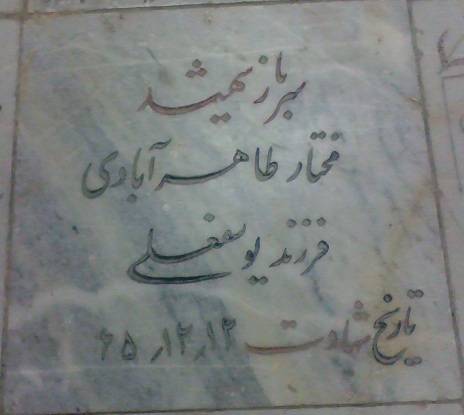 سرباز شهید
مختار طاهرآبادی
فرزند یوسفعلی
تاریخ شهادت ۱۲٫۱۲٫۶۵